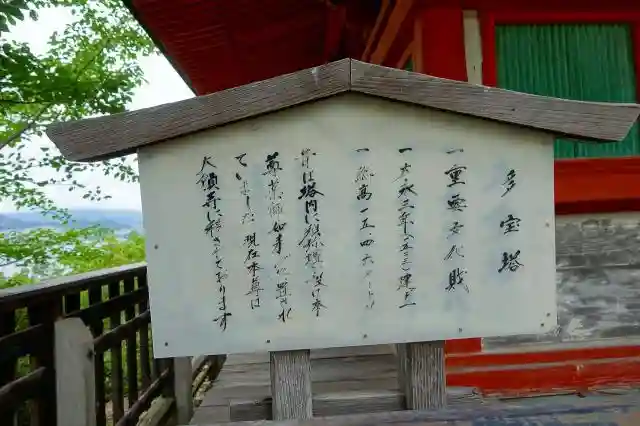 多宝塔
一 重要文化財
一 大永三年(一五二三)建立
一 総高一五・四六メートル
昔は塔内に 壇を設け本
尊薬師如来が安置され
ていました 現在本尊は
大願寺に移されております